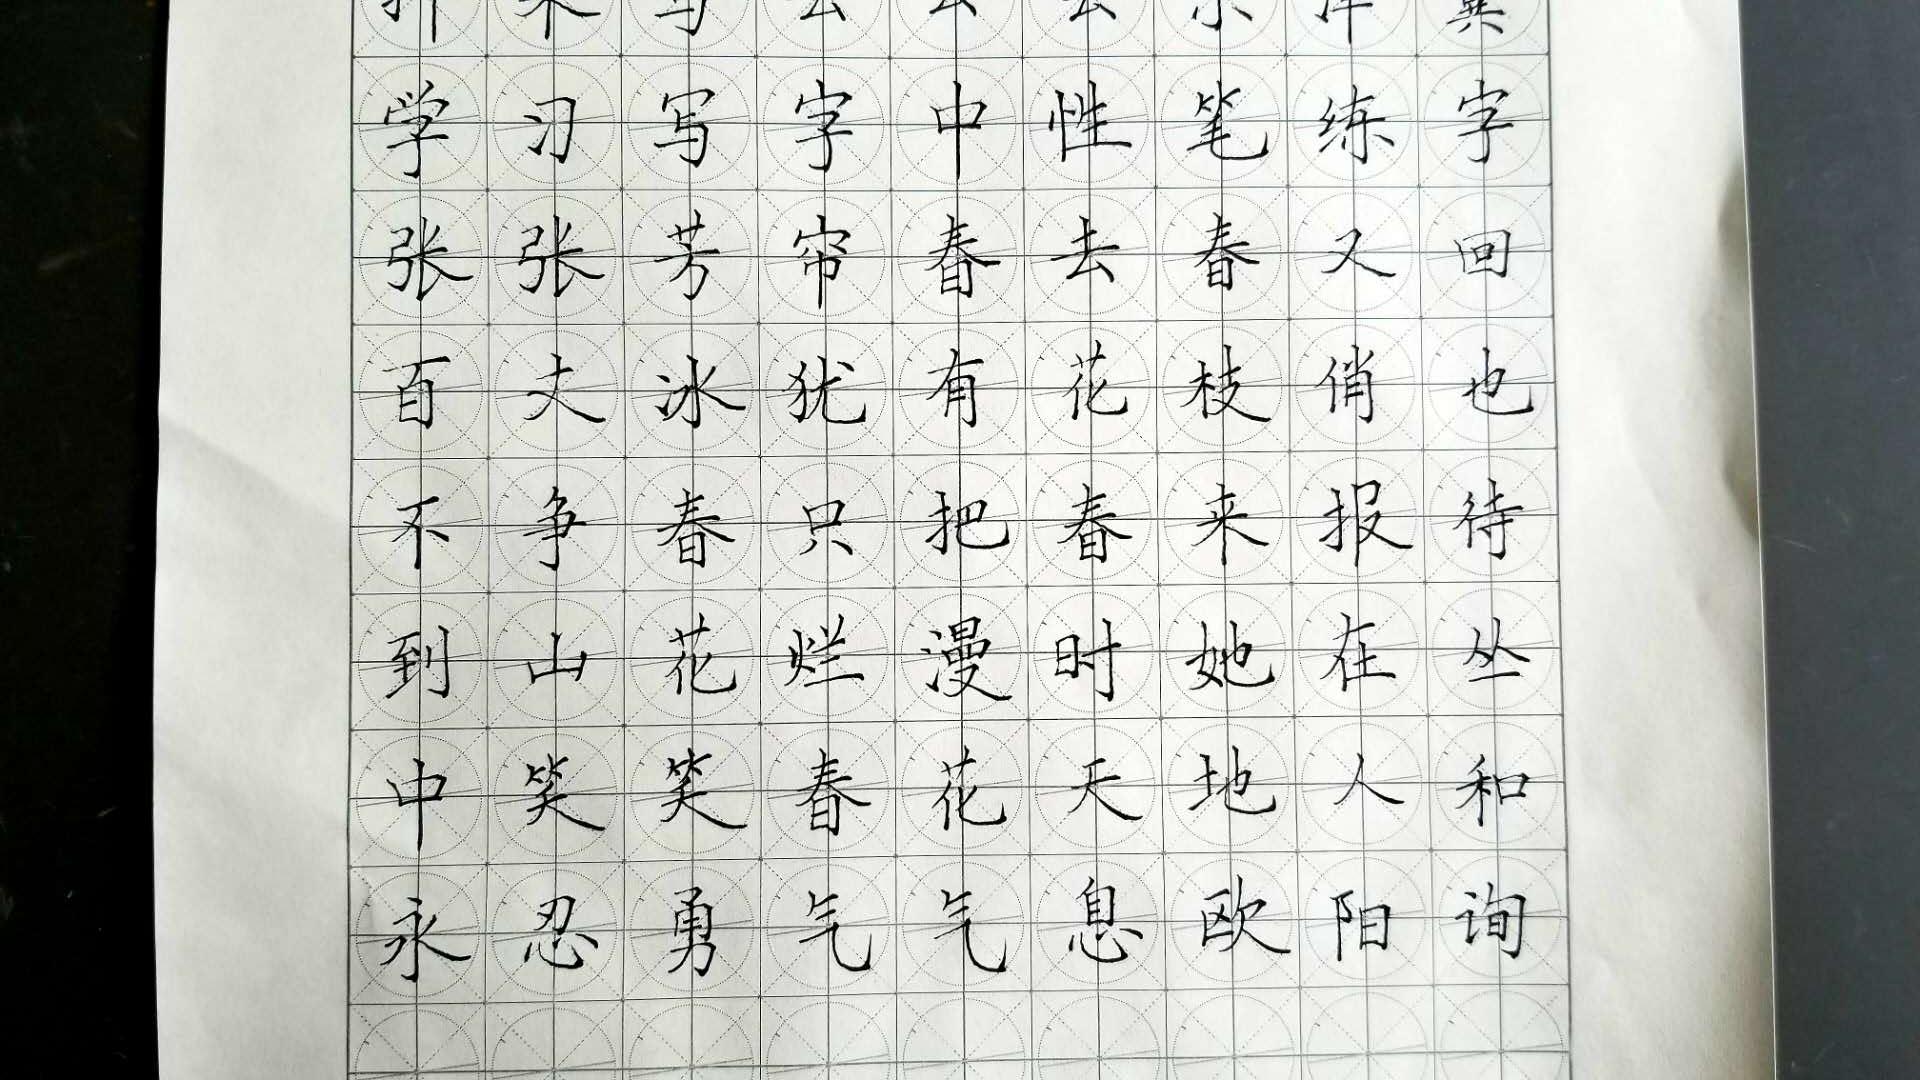 学习写字中性笔练字
张张芳帘春去春又回
百丈冰犹有花枝俏也
不争春只把春来报待
到山花烂漫时她在丛
中笑笑春花天地人和
永忍勇气气息欧阳询